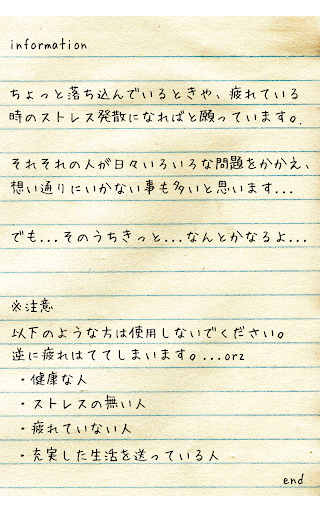 information
ちょっと落ち込んでいるときや、疲れている
時のストレス発散になればと願っています。
それそれの人が日々いろいろな問題をかかえ、
想い通りにいかない事も多いと思います...
でも...そのうちきっと...なんとかなるよ...
※注意
以下のような方は使用しないでください。
逆に疲れはててしまいます。...orz
・健康な人
・ストレスの無い人
・疲れていない人
・充実した生活を送っている人
end